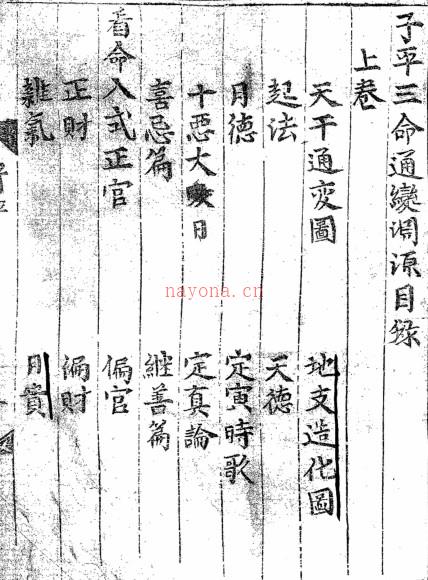 子平三命通變淵源目錄
上卷
天干通変圖 地支造化圖
起法 天德
月德 定寅時歌
十惡大日 定真論
喜忌篇 継善篇
看命入式正官 偏官
正財 偏財
雜氣 日貴
nayona.cn